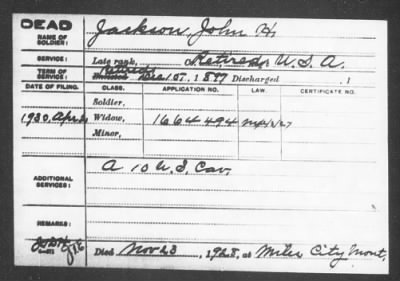 DEAD
NAME OF SOLDIER: Jackson, John H.
SERVICE: Late rank, Retired, U.S.A.
TERM OF SERVICE: Retired Dec 1 07, 1897 Discharged , 1
DATE OF FILING. CLASS. APPLICATION NO. LAW. CERTIFICATE NO.
Soldier,
1930, Apr. Widow, 1664494
Minor,
ADDITIONAL SERVICES: A 10 U.S. Cav.
REMARKS:
Died Nov 23, 1928, at Miles City Mont.